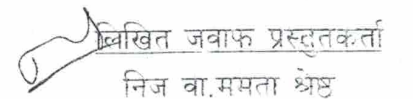 लिखित जवाफ प्रस्तुतकर्ता
निज वा.ममता श्रेष्ठ